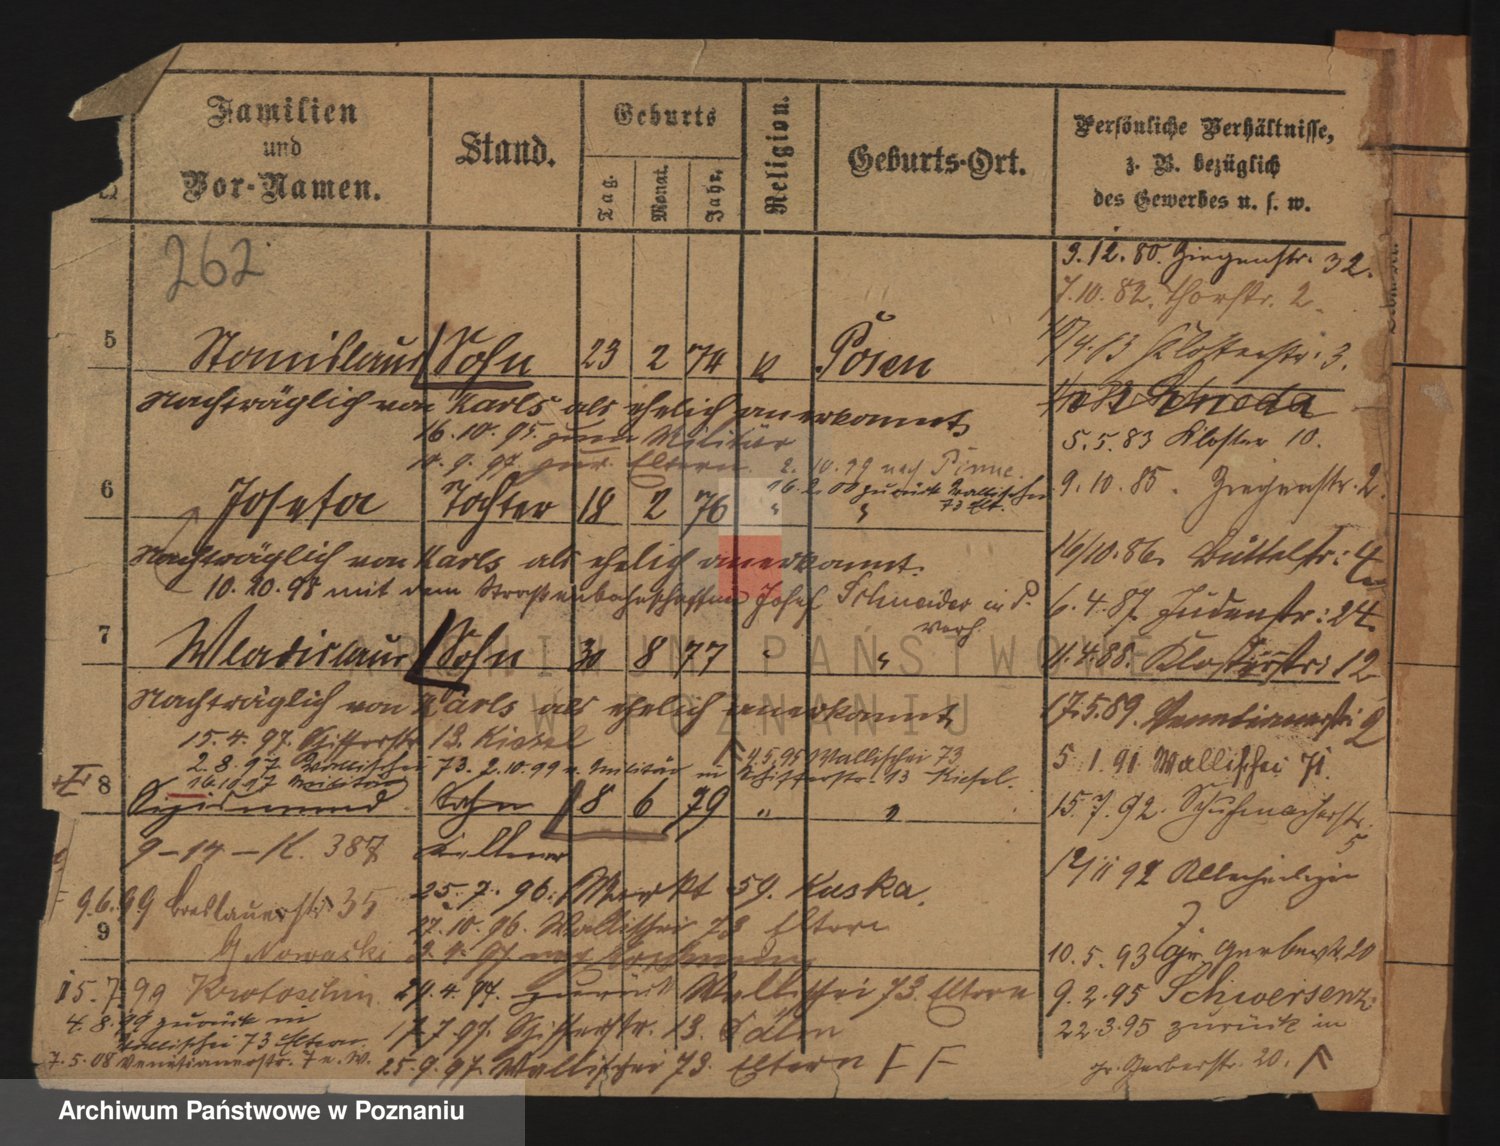 Familien
und
Vor-Namen.
Stand.
Geburts
Tag.
Monat.
Jahr.
Religion.
Geburts-Ort.
Persönliche Verhältnisse,
z. B. bezüglich
des Gewerbes u. s. w.
262
3.12.80. Ziegenstr. 32.
7.10.82. Thorstr. 2
Klosterstr. 3.
5 Stanislaus Sohn 23 2 74 k Posen
Nachträglich von Karls als ehelich anerkannt
5.5.83 Kloster 10.
16.10.95. zum Militär
zur Eltern. 2.10.99 nach Pinne.
16.2.00 zurück Wallischei
73 Elt.
9.10.85. Ziegenstr. 2.
6 Josefa Tochter 18 2 76 " "
Nachträglich von Karls als ehelich anerkannt.
16/10.86. Büttelstr: 4
10.20.98 mit dem Straßenbahnschaffner Josef Schneider in P.
verh.
6.4.87. Judenstr: 24.
7 Wladislaus Sohn 30 8 77 " "
11.4.88. Klosterstr: 12
Nachträglich von Karls als ehelich anerkannt
17.5.89. Venetianerstr. 2
15.4.97. Schifferstr. 13. Kiesel
2.8.97 Wallischei 73. 2.10.99 z. Militär
4.5.95 Wallischei 73
Schifferstr. 13 Kiesel.
5 1.91 Wallischei 71.
16.10.97 Militär
8 Sigismund Sohn 8 6 79 " "
15.7.92. Schuhmacherstr.
5
9-14-K. 387 Kellner
12/11 92 Allerheiligen
7
25.7.96. Markt 59. Kuska.
9.6.99 Breslauerstr. 35
27.10.96. Wallischei 73 Eltern
9
Nowacki
10.5.93 gr Gerberstr 20
15.7.99 Krotoschin.
29.4.97. zurück Wallischei 73. Eltern
9.2.95 Schwersenz
4.8.99 zurück in
Wallischei 73 Eltern.
17.7.97. Schifferstr. 13.
22.3.95 zurück in
7.5.08 Venetianerstr. 7 e. W.
25.9.97. Wallischei 73. Eltern F F
gr. Gerberstr. 20.
ARCHIWUM PAŃSTWOWE
W POZNANIU
Archiwum Państwowe w Poznaniu